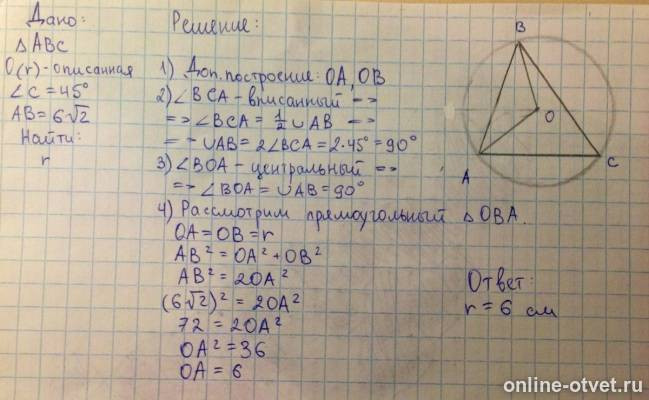 Дано:
△ABC
O(r)-описанная
∠C=45°
AB=6√2
Найти:
r
Решение:
1) Доп. построение: OA, OB
2) ∠BCA - вписанный =>
=> ∠BCA = 1/2 ∪AB =>
=> ∪AB = 2∠BCA = 2·45° = 90°
3) ∠BOA - центральный =>
=> ∠BOA = ∪AB = 90°
4) Рассмотрим прямоугольный △OBA.
OA = OB = r
AB² = OA² + OB²
AB² = 2OA²
(6√2)² = 2OA²
72 = 2OA²
OA² = 36
OA = 6
B
O
A
C
Ответ:
r = 6 см
online-otvet.ru